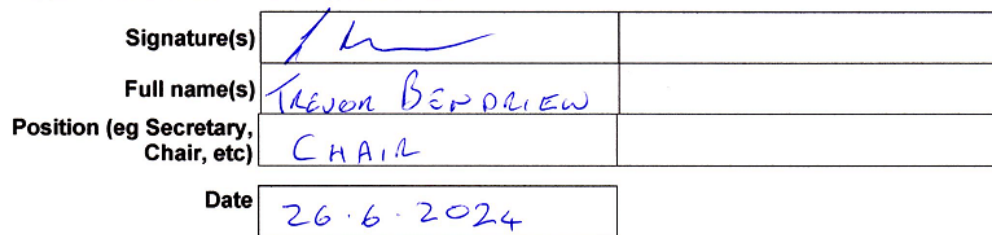 Signature(s)
Full name(s) TREVOR BENDRIEW
Position (eg Secretary,
Chair, etc) CHAIR
Date 26.6.2024